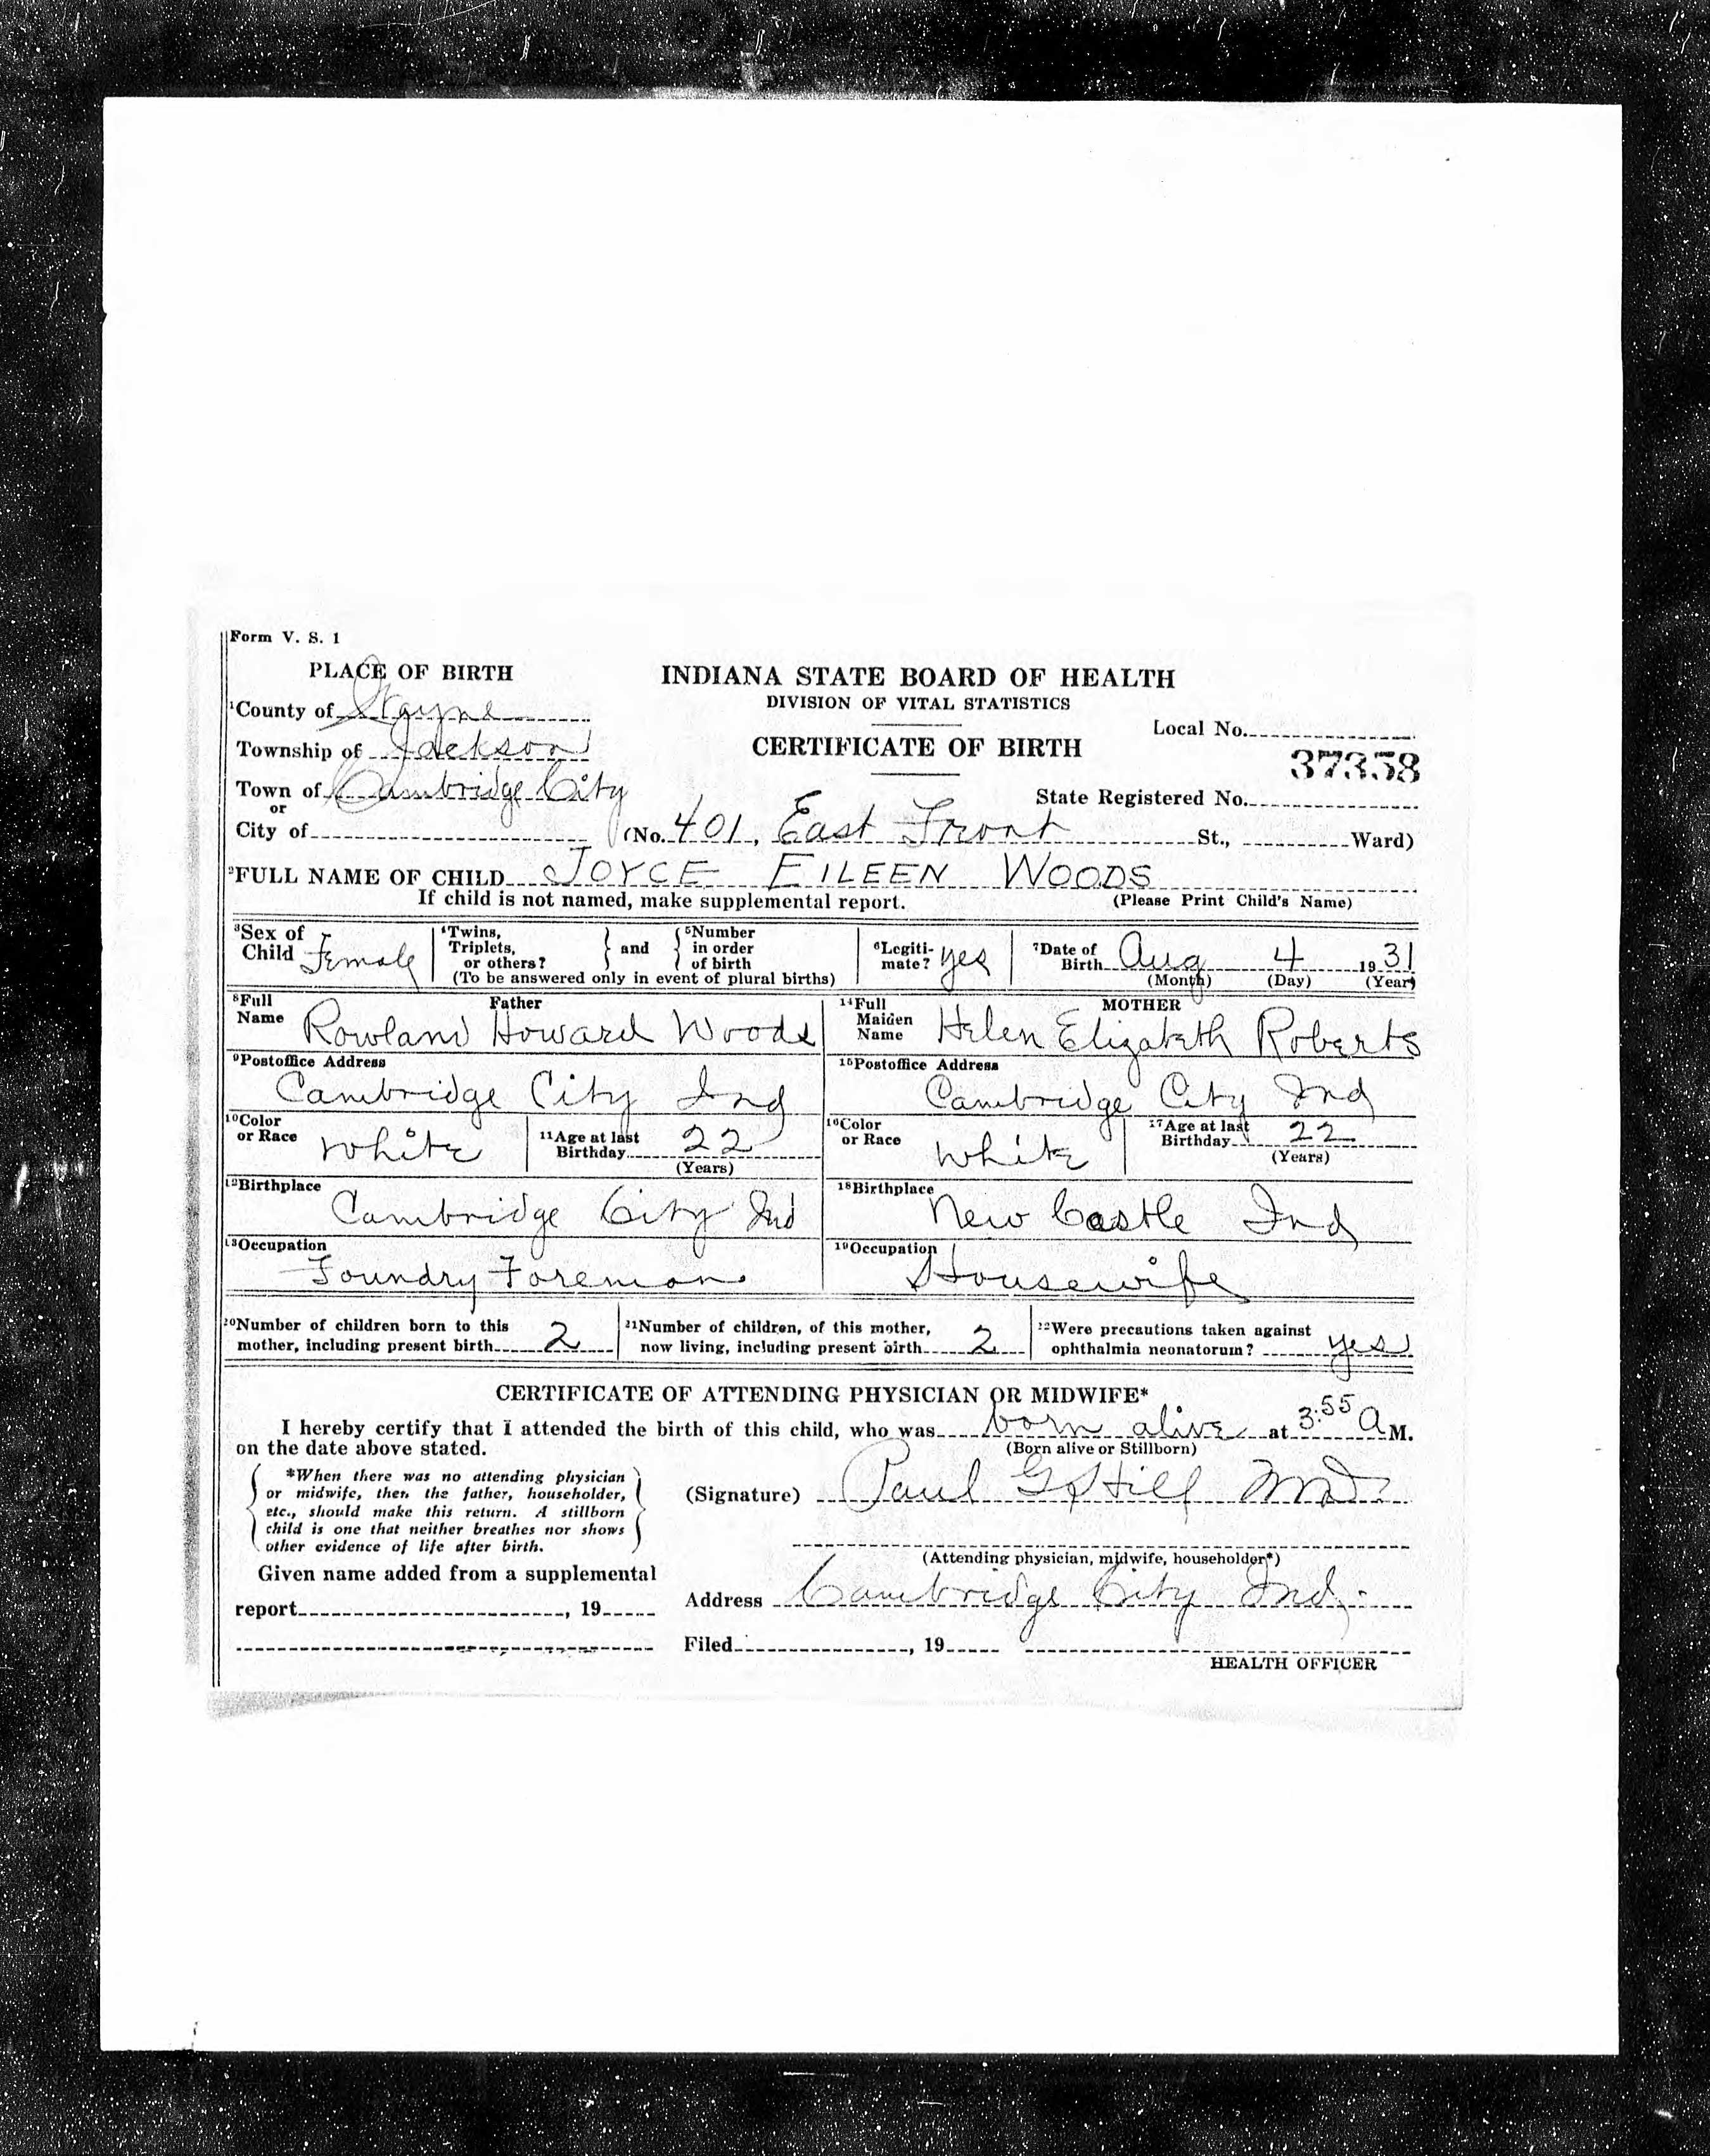 Form V. S. 1
PLACE OF BIRTH
INDIANA STATE BOARD OF HEALTH
DIVISION OF VITAL STATISTICS
1County of Wayne
Local No.
Township of Jackson
CERTIFICATE OF BIRTH
37358
Town of Cambridge City
or
State Registered No.
City of (No. 401, East Front St., Ward)
2FULL NAME OF CHILD JOYCE EILEEN WOODS
If child is not named, make supplemental report. (Please Print Child's Name)
3Sex of Child Female
4Twins, Triplets, or others? } and { 5Number in order of birth
(To be answered only in event of plural births)
6Legiti-mate? yes
7Date of Birth Aug 4 1931
(Month) (Day) (Year)
8Full Name Father
Rowland Howard Woods
14Full Maiden Name MOTHER
Helen Elizabeth Roberts
9Postoffice Address
Cambridge City Ind
15Postoffice Address
Cambridge City Ind
10Color or Race White
11Age at last Birthday 22
(Years)
16Color or Race White
17Age at last Birthday 22
(Years)
12Birthplace
Cambridge City Ind
18Birthplace
New Castle Ind
13Occupation
Foundry Foreman
19Occupation
Housewife
20Number of children born to this mother, including present birth 2
21Number of children, of this mother, now living, including present birth 2
22Were precautions taken against ophthalmia neonatorum? yes
CERTIFICATE OF ATTENDING PHYSICIAN OR MIDWIFE*
I hereby certify that I attended the birth of this child, who was born alive at 3:55 A M.
on the date above stated. (Born alive or Stillborn)
*When there was no attending physician
or midwife, then the father, householder,
etc., should make this return. A stillborn
child is one that neither breathes nor shows
other evidence of life after birth.
(Signature) Paul Hill MD.
(Attending physician, midwife, householder*)
Given name added from a supplemental
report , 19
Address Cambridge City Ind.
Filed , 19
HEALTH OFFICER